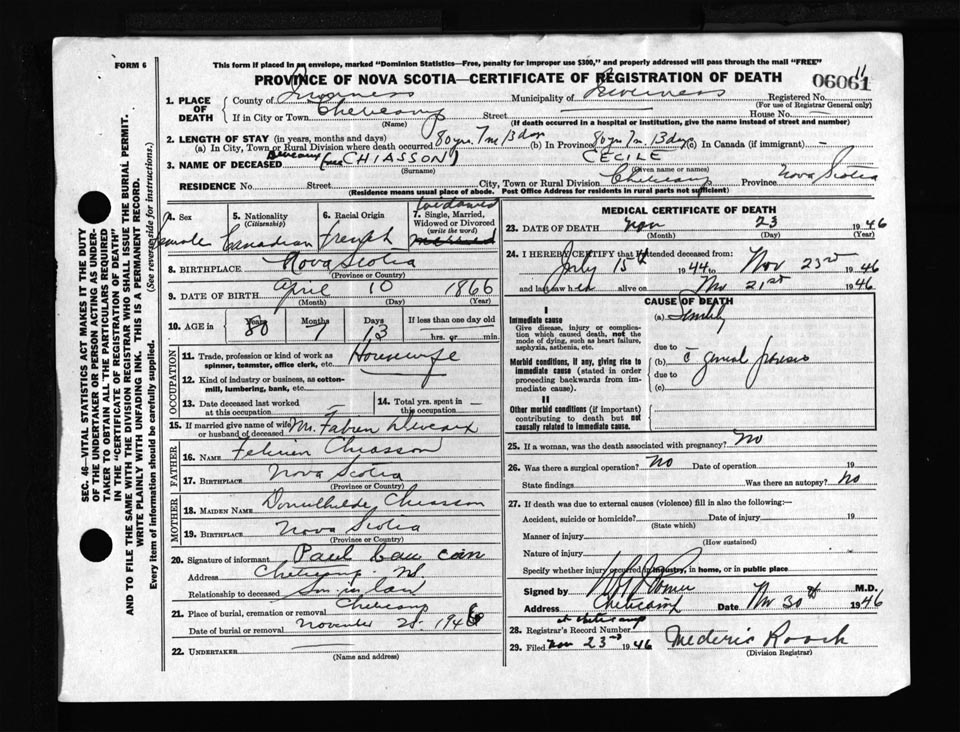 FORM 6
This form if placed in an envelope, marked "Dominion Statistics—Free, penalty for improper use $300," and properly addressed will pass through the mail "FREE"
PROVINCE OF NOVA SCOTIA—CERTIFICATE OF REGISTRATION OF DEATH
11
06061
1. PLACE OF DEATH
County of Inverness Municipality of Inverness Registered No.
(For use of Registrar General only)
If in City or Town Cheticamp Street House No.
(Name) (If death occurred in a hospital or institution, give the name instead of street and number)
2. LENGTH OF STAY (in years, months and days)
(a) In City, Town or Rural Division where death occurred 80 yrs 7 m 13 days (b) In Province 80 yrs 7 m 13 days (c) In Canada (if immigrant) —
3. NAME OF DECEASED Deveaux (née CHIASSON) CECILE
(Surname) (Given name or names)
RESIDENCE No. Street City, Town or Rural Division Cheticamp Province Nova Scotia
(Residence means usual place of abode. Post Office Address for residents in rural parts not sufficient)
SEC. 46—VITAL STATISTICS ACT MAKES IT THE DUTY
OF THE UNDERTAKER OR PERSON ACTING AS UNDER-
TAKER TO OBTAIN ALL THE PARTICULARS REQUIRED
IN THE "CERTIFICATE OF REGISTRATION OF DEATH"
AND TO FILE THE SAME WITH THE DIVISION REGISTRAR WHO SHALL ISSUE THE BURIAL PERMIT.
WRITE PLAINLY WITH UNFADING INK. THIS IS A PERMANENT RECORD.
Every item of information should be carefully supplied. (See reverse side for instructions.)
4. Sex
female
5. Nationality
(Citizenship)
Canadian
6. Racial Origin
French
7. Single, Married,
Widowed or Divorced
(write the word)
Widowed
8. BIRTHPLACE Nova Scotia
(Province or Country)
9. DATE OF BIRTH April 10 1866
(Month) (Day) (Year)
10. AGE in Years Months Days If less than one day old
80 7 13 hrs. or min.
OCCUPATION
11. Trade, profession or kind of work as
spinner, teamster, office clerk, etc. Housewife
12. Kind of industry or business, as cotton-
mill, lumbering, bank, etc.
13. Date deceased last worked
at this occupation —
14. Total yrs. spent in
this occupation —
15. If married give name of wife
or husband of deceased Mr. Fabien Deveaux
FATHER
16. NAME Felicien Chiasson
17. BIRTHPLACE Nova Scotia
(Province or Country)
MOTHER
18. MAIDEN NAME Chiasson
19. BIRTHPLACE Nova Scotia
(Province or Country)
20. Signature of informant Paul
Address Cheticamp NS
Relationship to deceased Son-in-law
21. Place of burial, cremation or removal Cheticamp
Date of burial or removal November 25 1946
22. UNDERTAKER
(Name and address)
MEDICAL CERTIFICATE OF DEATH
23. DATE OF DEATH Nov 23 1946
(Month) (Day) (Year)
24. I HEREBY CERTIFY that I attended deceased from:
July 15th 1944 to Nov 23rd 1946
and last saw h er alive on Nov 21st 1946
CAUSE OF DEATH
I
Immediate cause
Give disease, injury or complica-
tion which caused death, not the
mode of dying, such as heart failure,
asphyxia, asthenia, etc.
(a) Senility
due to
Morbid conditions, if any, giving rise to
immediate cause (stated in order
proceeding backwards from im-
mediate cause).
(b) c̄ general
due to
(c)
II
Other morbid conditions (if important)
contributing to death but not
causally related to immediate cause.
25. If a woman, was the death associated with pregnancy? No
26. Was there a surgical operation? No Date of operation 19
State findings Was there an autopsy? No
27. If death was due to external causes (violence) fill in also the following:—
Accident, suicide or homicide? Date of injury 19
(State which)
Manner of injury
(How sustained)
Nature of injury
Specify whether injury occurred in industry, in home, or in public place
Signed by M.D.
Address Cheticamp Date Nov 30th 1946
at Cheticamp
28. Registrar's Record Number
29. Filed Nov 23rd 1946 Mederic Roach
(Division Registrar)